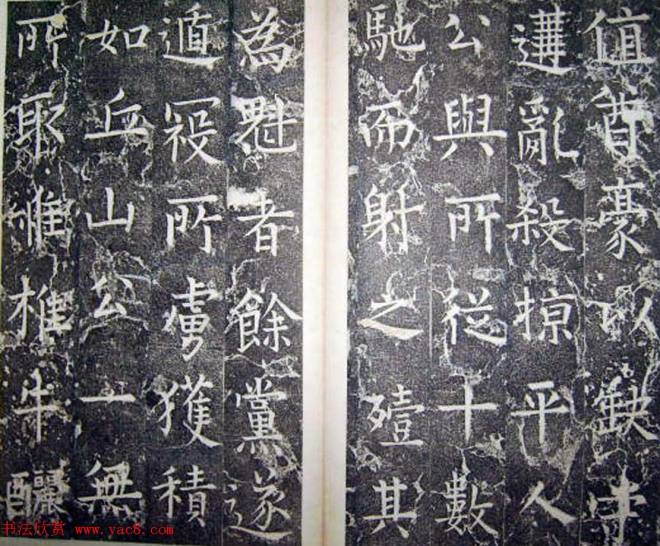 值酋豪以缺守
遘亂殺掠平人
公與所從十數
馳而射之殪其
為魁者餘黨遂
遁冦所虜獲積
如丘山公一無
所取惟椎牛釃
书法欣赏 www.yac8.com